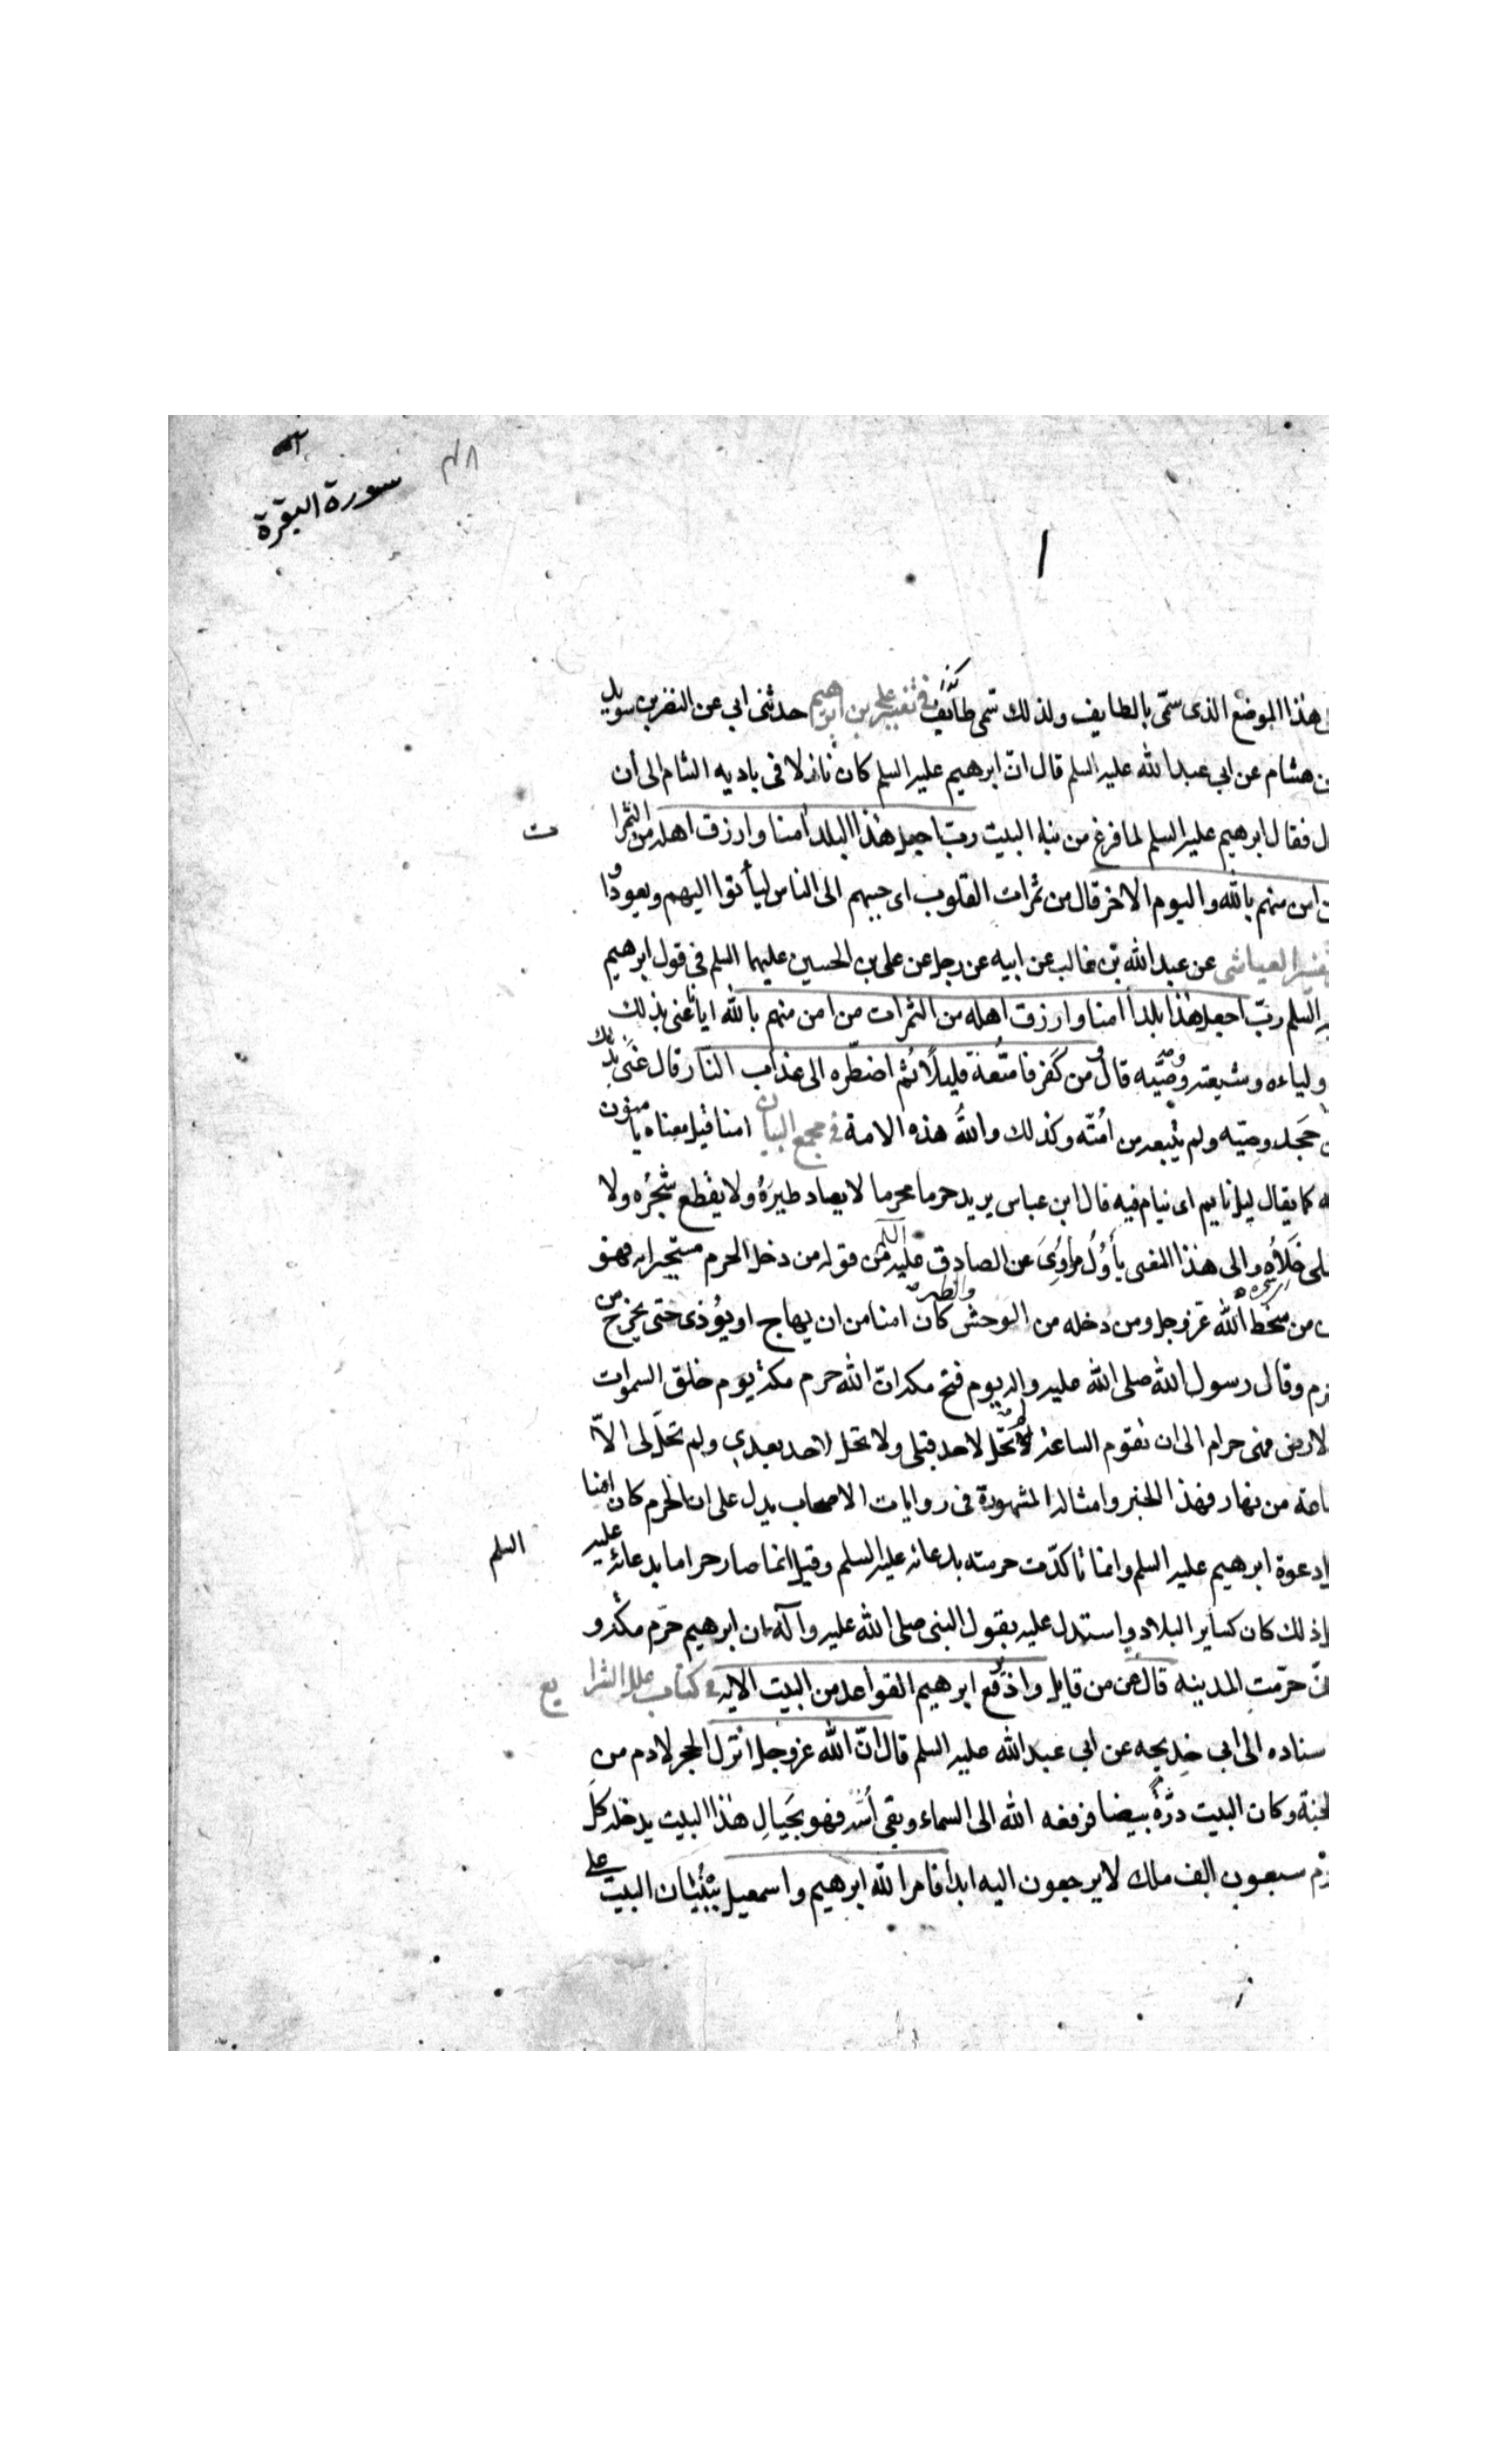 سورة البقرة
هذا الموضع الذى سمّى بالطايف ولذلك سمّى طائفا فى تفسير على بن ابرهيم حدثنى ابى عن النضر بن سويد
هشام عن ابى عبد الله عليه السلم قال انّ ابرهيم عليه السلم كان نازلا فى باديه الشام الى أن
فقال ابرهيم عليه السلم لما فرغ من بناء البيت ربّ اجعل هذا البلد امنا وارزق اهله من الثمرات
امن منهم بالله واليوم الاخر قال من ثمرات القلوب اى حببهم الى الناس ليأتوا اليهم ويعودوا
العياشى عن عبد الله بن غالب عن ابيه عن رجل عن على بن الحسين عليهما السلم فى قول ابرهيم
السلم ربّ اجعل هذا بلداً امنا وارزق اهله من الثمرات من امن منهم بالله ايانا عنى بذلك
ولياءه وشيعته وصيّه قال ومن كفر فامتّعه قليلاً ثم اضطّره الى عذاب النّار قال عنى بذلك
جحد وصيّه ولم يتبعه من امّته وكذلك والله هذه الامة فى مجمع البيان امنا قيل معناه يامنون
كما يقال ليل نايم اى ينام فيه قال ابن عباس يريد حرما محرما لا يصاد طيره ولا يقطع شجره ولا
خلاؤه والى هذا المعنى يأول ما روى عن الصادق عليه السلم من قوله من دخل الحرم مستجيرا به فهو
من سخط الله عزوجل ومن دخله من الوحش والطير كان امنا من ان يهاج او يؤذى حتى يخرج من
وقال رسول الله صلى الله عليه واله يوم فتح مكة انّ الله حرم مكة يوم خلق السموات
فهى حرام الى ان تقوم الساعة لم تحل لاحد قبلى ولا تحل لاحد بعدى ولم تحلّ لى الاّ
من نهار فهذا الخبر وامثاله المشهورة فى روايات الاصحاب يدل على ان الحرم كان امنا
دعوة ابرهيم عليه السلم وانما تاكدّت حرمته بدعائه عليه السلم وقيل انما صار حراما بدعائه عليه السلم
ذلك كان كساير البلاد واستدل عليه بقول النبى صلى الله عليه وآله ان ابرهيم حرّم مكة و
حرّمت المدينه قال عز من قايل واذ يرفع ابرهيم القواعد من البيت الايه فى كتاب علل الشرايع
الى ابى خديجه عن ابى عبد الله عليه السلم قال انّ الله عزوجل انزل الحجر لادم من
وكان البيت درّة بيضا فرفعه الله الى السماء وبقى أسّه فهو بحيال هذا البيت يدخله كلّ
سبعون الف ملك لا يرجعون اليه ابداً فامر الله ابرهيم واسمعيل ببنيان البيت على